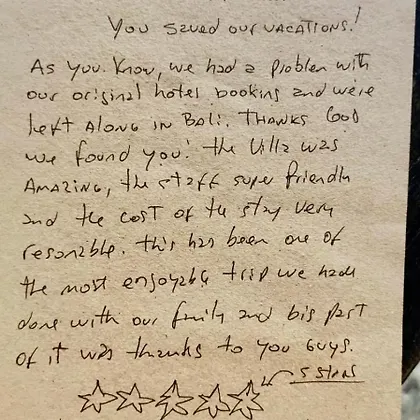 You saved our vacations!
As you know, we had a problem with
our original hotel booking and were
left along in Bali. Thanks God
we found you! the Villa was
Amazing, the staff super friendly
and the cost of the stay very
resonable. this has been one of
the most enjoyable trip we have
done with our family and big part
of it was thanks to you guys.
5 stars